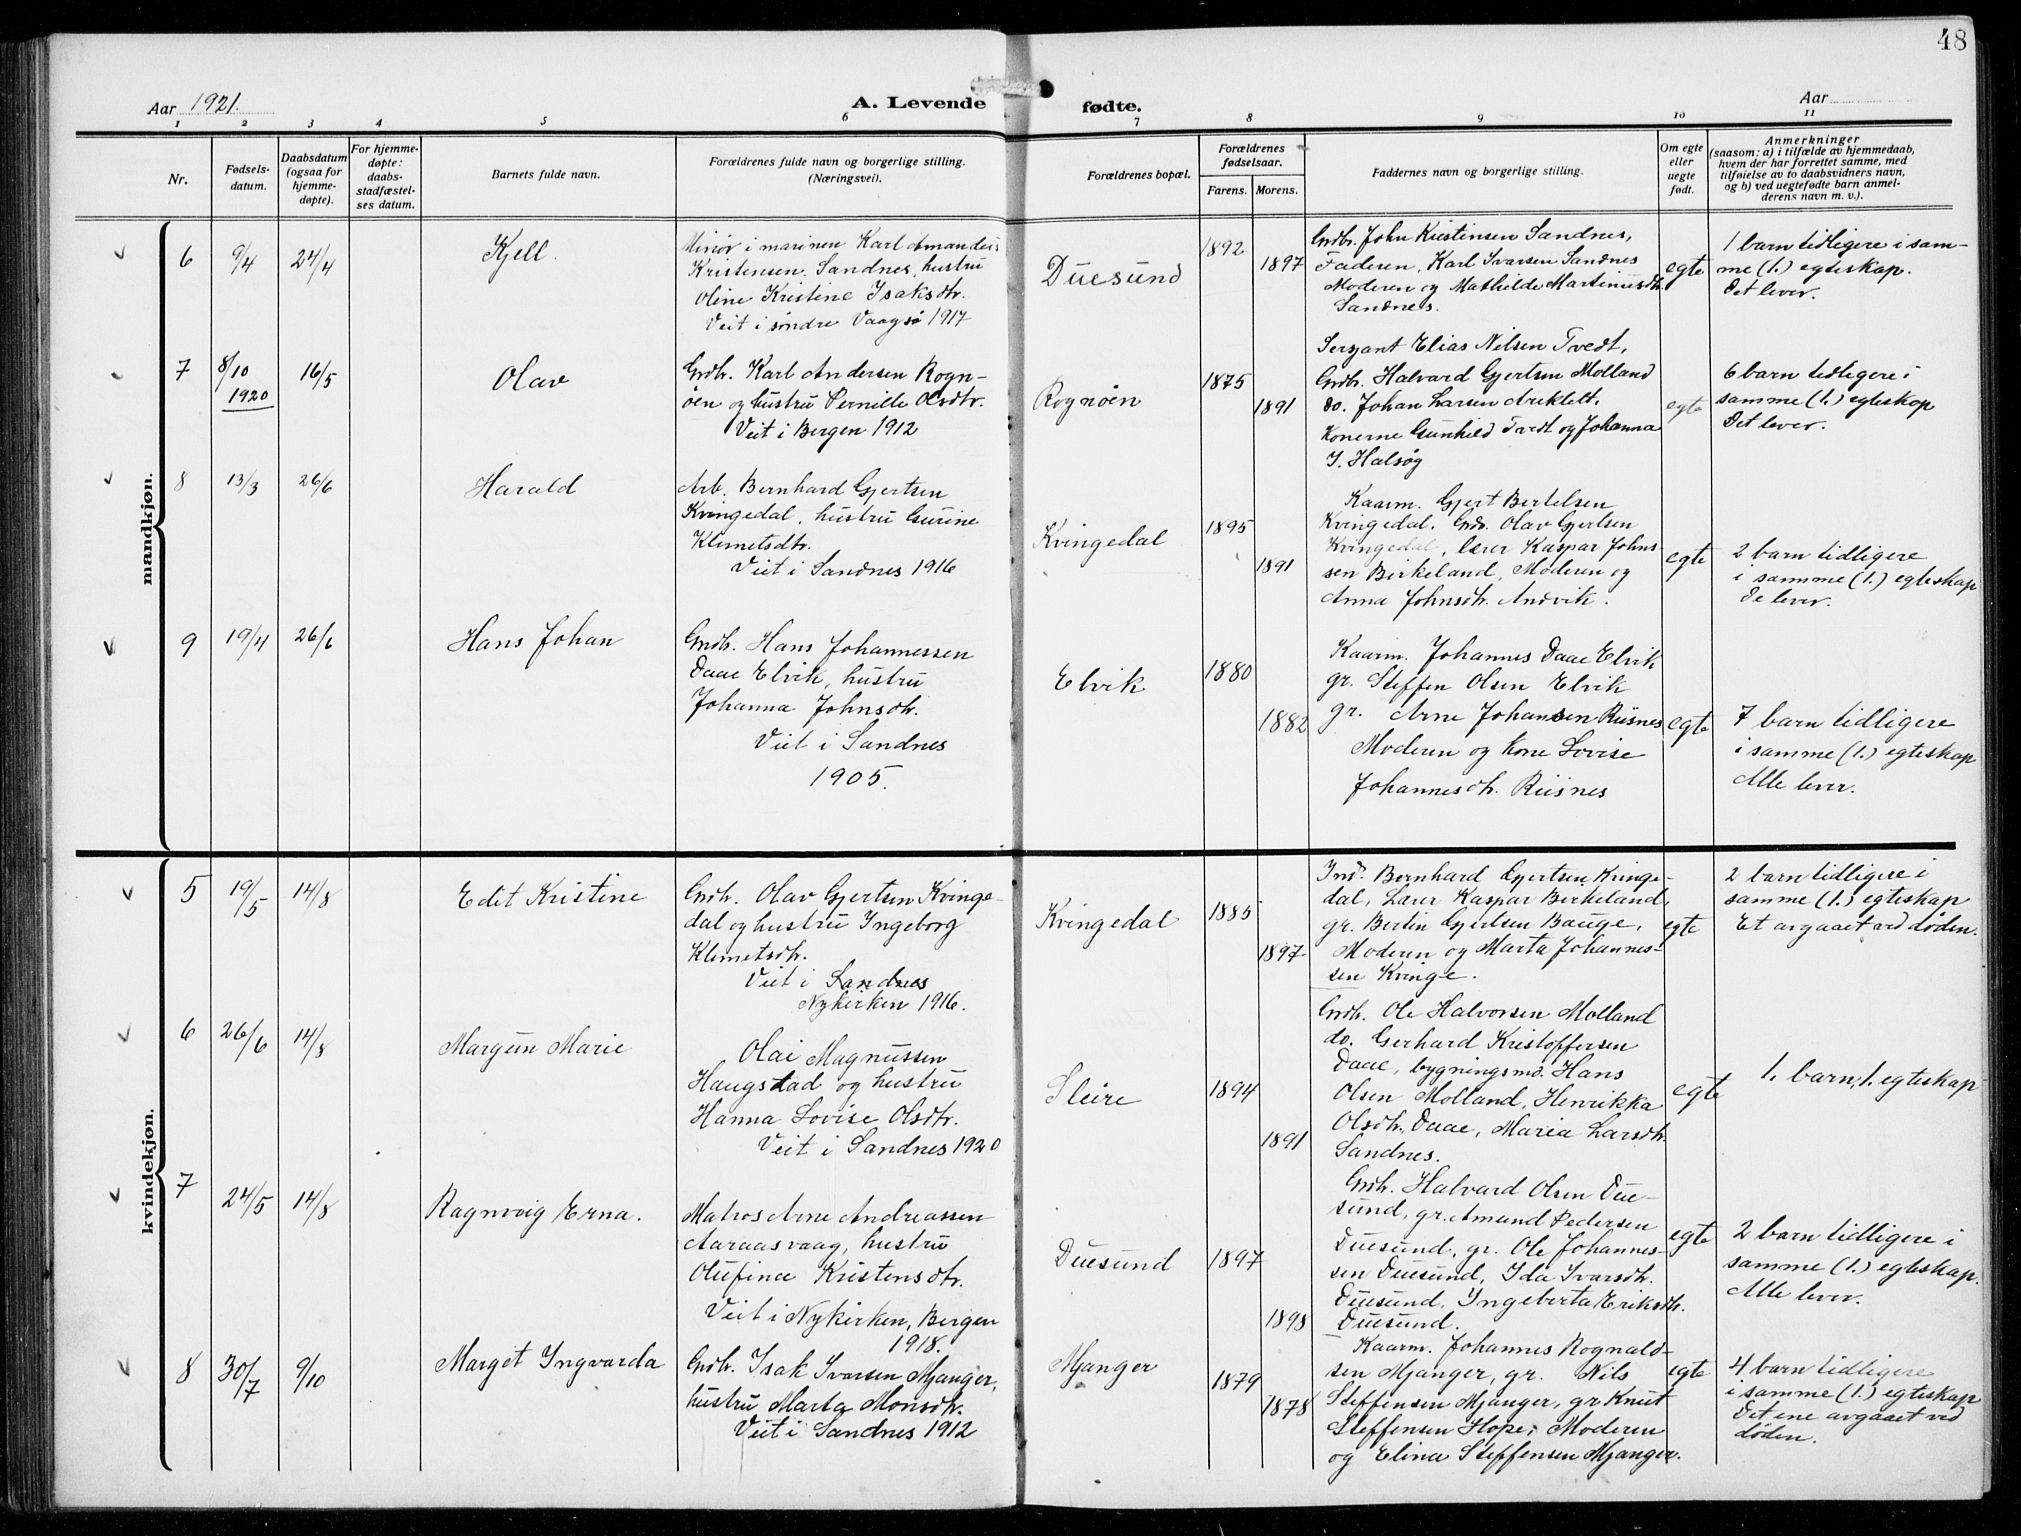 48
Aar 1921.
A. Levende fødte.
Aar
1 2 3 4 5 6 7 8 9 10 11
Nr.
Fødsels-
datum.
Daabsdatum
(ogsaa for
hjemme-
døpte).
For hjemme-
døpte:
daabs-
stadfæstel-
ses datum.
Barnets fulde navn.
Forældrenes fulde navn og borgerlige stilling.
(Næringsvei).
Forældrenes bopæl.
Forældrenes
fødselsaar.
Farens. Morens.
Faddernes navn og borgerlige stilling.
Om egte
eller
uegte
født.
Anmerkninger
(saasom: a) i tilfælde av hjemmedaab,
hvem der har forrettet samme, med
tilføielse av to daabsvidners navn,
og b) ved uegtefødte barn anmel-
derens navn m. v.).
mandkjøn.
6 9/4 24/4
Kjell.
Minør i marinen Karl Amandus
Kristensen Sandnes, hustru
Oline Kristine Isaksdtr.
Veit i søndre Vaagsø 1917
Duesund
1892
1897
Grdbr. John Kristensen Sandnes,
Faderen, Karl Ivarsen Sandnes
Moderen og Mathilde Martinusdtr.
Sandnes.
egte
1 barn tidligere i sam-
me (1.) egteskap.
Det lever.
7 8/10 1920 16/5
Olav
Grdbr. Karl Andersen Rogn-
øen og hustru Pernille Olsdtr.
Veit i Bergen 1912
Rognøen
1875
1891
Sersjant Elias Nilsen Tvedt,
Grdbr. Halvard Gjertsen Molland
do. Johan Larsen Areklett,
Konerne Gunhild Tvedt og Johanna
J. Halsøg
egte
6 barn tidligere i
samme (1.) egteskap
Det lever.
8 13/3 26/6
Harald
Arb. Bernhard Gjertsen
Kvingedal, hustru Gurine
Klemetsdtr.
Viet i Sandnes 1916
Kvingedal
1895
1891
Kaarm. Gjert Bertelsen
Kvingedal, Grdb. Olav Gjertsen
Kvingedal, lærer Kaspar Johns-
sen Birkeland, Moderen og
Anna Johnsdtr. Andvik.
egte
2 barn tidligere
i samme (1.) egteskap
De lever.
9 19/4 26/6
Hans Johan
Grdbr. Hans Johannessen
Daae Elvik, hustru
Johanna Johnsdtr.
Viet i Sandnes
1905.
Elvik
1880
1882
Kaarm. Johannes Daae Elvik
gr. Steffen Olsen Elvik
gr. Arne Johansen Risnes
Moderen og kone Lovise
Johannesdtr. Risnes
egte
7 barn tidligere
i samme (1.) egteskap
Alle lever.
kvindekjøn.
5 19/5 14/8
Edit Kristine
Grdbr. Olav Gjertsen Kvinge-
dal og hustru Ingeborg
Klemetsdtr.
Viet i Sandnes
Nykirken 1916.
Kvingedal
1885
1897
Ind. Bernhard Gjertsen Kvinge-
dal, Lærer Kaspar Birkeland,
gr. Bertin Gjertsen Bauge,
Moderen og Marta Johannes-
sen Kvinge.
egte
2 barn tidligere i
samme (1.) egteskap
Et avgaaet ved døden.
6 26/6 14/8
Margun Marie
Olai Magnussen
Haugstad og hustru
Hanna Lovise Olsdtr.
Veit i Sandnes 1920
Sleire
1894
1891
Grdbr. Ole Halvorsen Molland
do. Gerhard Kristoffersen
Daae, bygningsmd. Hans
Olsen Molland, Henrikka
Olsdtr. Daae, Maria Larsdtr.
Sandnes.
egte
1. barn, 1. egteskap
7 24/5 14/8
Ragnvig Erna.
Matros Arne Andreassen
Aaraasvaag, hustru
Olufina Kristensdtr.
Veit i Nykirken, Bergen
1918.
Duesund
1897
1898
Grdbr. Halvard Olsen Due-
sund, gr. Amund Pedersen
Duesund, gr. Ole Johannes-
sen Duesund, Ida Ivarsdtr.
Duesund, Ingeberta Eriksdtr.
Duesund.
egte
2 barn tidligere i
samme (1.) egteskap.
Alle lever.
8 30/7 9/10
Marget Ingvarda
Grdbr. Isak Ivarsen Mjanger,
hustru Marta Monsdtr.
Veit i Sandnes 1912
Mjanger
1879
1878
Kaarm. Johannes Rognald-
sen Mjanger, gr. Nils
Steffensen Mjanger, gr Knut
Steffensen Hope, Moderen
og Elina Steffensen Mjanger.
egte
4 barn tidligere
i samme (1.) egteskap
Det ene avgaaet ved
døden.